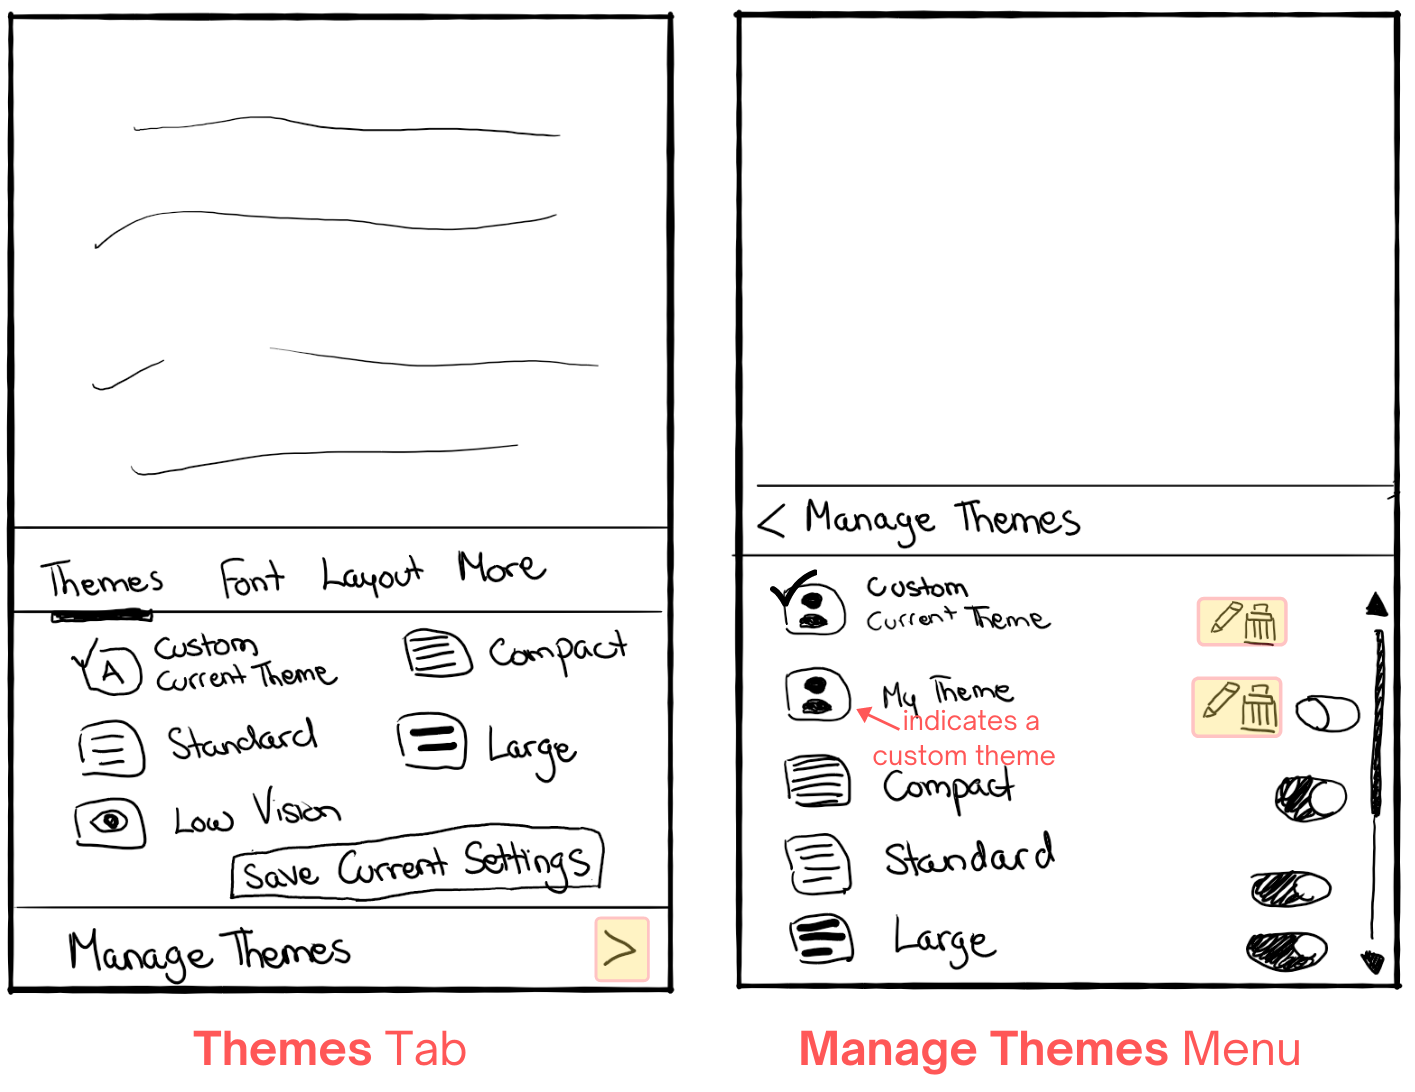 Themes Font Layout More
Custom
Current Theme
Compact
Standard
Large
Low Vision
Save Current Settings
Manage Themes >
Themes Tab
< Manage Themes
Custom
Current Theme
My Theme
indicates a
custom theme
Compact
Standard
Large
Manage Themes Menu